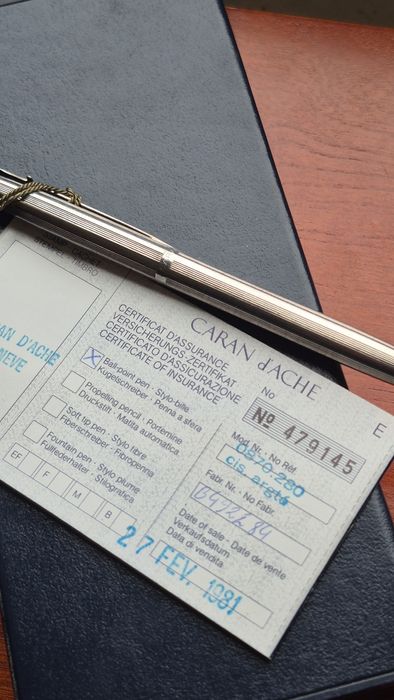 STEMPEL - TIMBRO
AN D'ACHE
NEVE
CARAN d'ACHE
CERTIFICAT D'ASSURANCE
VERSICHERUNGS-ZERTIFIKAT
CERTIFICATO D'ASSICURAZIONE
CERTIFICATE OF INSURANCE
No
E
Nº 479145
X
Ball-point pen - Stylo-bille
Kugelschreiber - Penna a sfera
Propelling pencil - Portemine
Druckstift - Matita automatica
Soft tip pen - Stylo fibre
Fiberschreiber - Fibropenna
Fountain pen - Stylo plume
Füllfederhalter - Stilografica
EF F M B
Mod. Nr. - No Réf.
0870-280
Fabr. Nr. - No Fabr.
Date of sale - Date de vente
Verkaufsdatum
Data di vendita
27 FEV. 1981